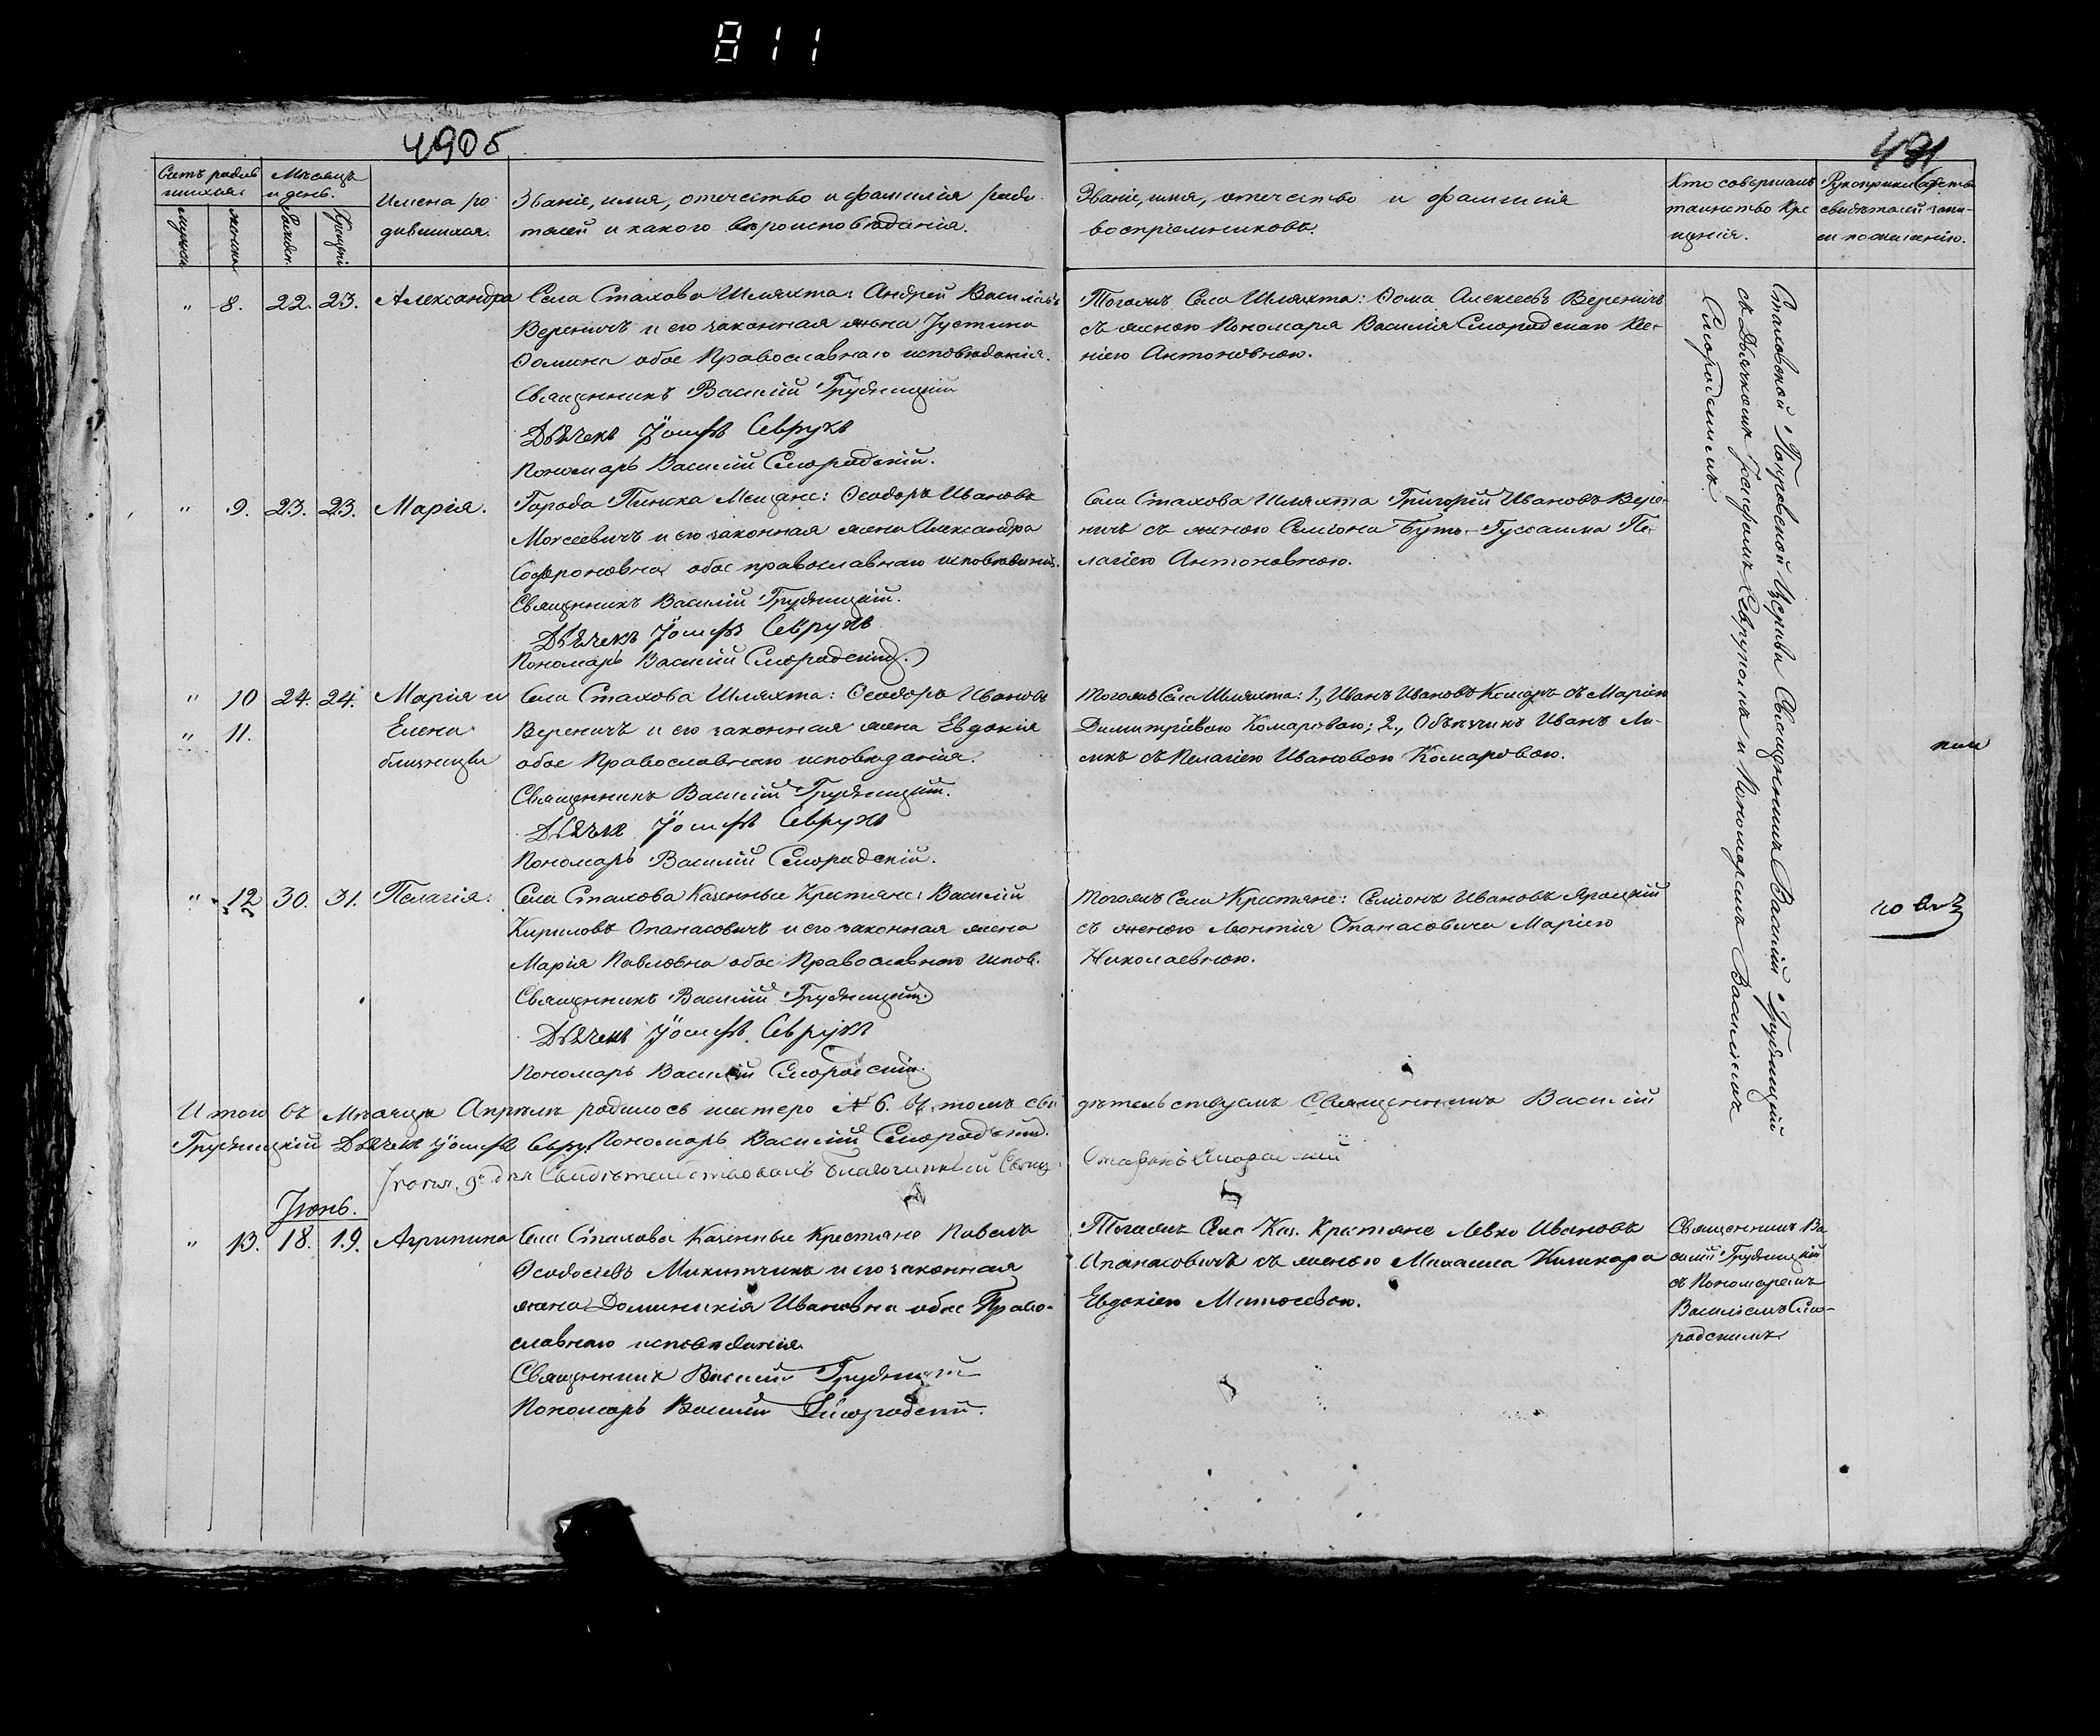 811
490б
491
Счетъ родив
шихся.
Мѣсяцъ
и день.
мужеска
женска
Рожден.
Крещені
Имена ро
дившихся.
Званіе, имя, отчество и фамилія роди
телей и какого вѣроисповѣданія.
Званіе, имя, отчество и фамилія
воспріемниковъ.
Кто совершалъ
таинство кре
щенія.
Рукоприкладство
свидѣтелей запи-
си по желанію.
" 8. 22. 23. Александра Села Стахова Шляхта: Андрей Васильевъ
Вереничъ и его законная жена Іустина
Ѳомина обое Православнаго исповѣданія.
Священникъ Василій Грудницкій
Дьячекъ Іосифъ Севрукъ
Пономарь Василій Смородскій.
Тогожъ Села Шляхта: Ѳома Алексеевъ Вереничъ
съ женою Пономаря Василія Смородскаго Ксе-
ніею Антоновною.
" 9. 23. 23. Марія. Города Пинска Мещане: Ѳеодоръ Ивановъ
Моисеевичъ и его законная жена Александра
Софроновна обое православнаго исповѣданія.
Священникъ Василій Грудницкій.
Дьячекъ Іосифъ Севрукъ
Пономарь Василій Смородскій.
Села Стахова Шляхта Григорій Ивановъ Вере-
ничъ съ женою Семіона Бутъ-Гуссаима Пе-
лагіею Антоновною.
" 10 24. 24. Марія и Села Стахова Шляхта: Ѳеодоръ Ивановъ
" 11. Елена Вереничъ и его законная жена Евдокія
близнецы обое Православнаго исповѣданія.
Священникъ Василій Грудницкій.
Дьячекъ Іосифъ Севрукъ
Пономарь Василій Смородскій.
Тогожъ Села Шляхта: 1., Иванъ Ивановъ Комаръ съ Маріею
Димитріевою Комаровою; 2., Объѣзчикъ Иванъ Ли-
съ Пелагіею Ивановою Комаровою.
" 12 30. 31. Пелагія. Села Стахова Казенные Крестьяне: Василій
Кириловъ Опанасовичъ и его законная жена
Марія Павловна обое Православнаго испов.
Священникъ Василій Грудницкій.
Дьячекъ Іосифъ Севрукъ
Пономарь Василій Смородскій.
Тогожъ Села Крестьяне: Семіонъ Ивановъ Яроцкій
съ женою Леонтія Опанасовича Маріею
Николаевною.
Стаховской Покровской Церкви Священникъ Василій Грудницкій
съ Дьячкомъ Іосифомъ Севрукомъ и Пономаремъ Василіемъ
Смородскимъ.
Итого въ Мѣсяцѣ Апрѣлѣ родилось шестеро № 6. въ томъ сви дѣтельствуемъ Священникъ Василій
Грудницкій Дьячекъ Іосифъ Севру. Пономарь Василій Смородскій.
9го дня Свидѣтельствовалъ Благочинный Свящ. Стефанъ
Іюнь.
" 13. 18. 19. Агрипина Села Стахова Казенные Крестьяне Павелъ
Ѳеодосіевъ Микитчикъ и его законная
жена Доминикія Ивановна обое Право-
славнаго исповѣданія.
Священникъ Василій Грудницкій
Пономарь Василій Смородскій.
Тогожъ Села Каз. Крестьяне Левко Ивановъ
Апанасовичъ съ женою Михаила Кишкора
Евдокіею Матѳеевою.
Священникъ Ва
силій Грудницкій
съ Пономаремъ
Василіемъ Смо-
родскимъ